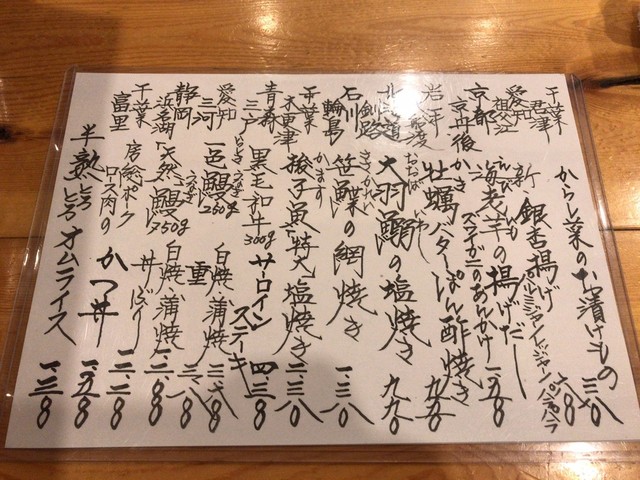 千葉 君津 からし菜のお漬けもの 三八〇
愛知 祖父江 新 銀杏揚げ パルミジャーノレッジャーノパラパラ 六八〇
京都 京丹後 海老芋の揚げだし ズワイガニのあんかけ 一、五八〇
岩手 かき 牡蠣バターぽん酢焼き 九八〇
北海道 釧路 おおばいわし 大羽鰯の塩焼き 九八〇
石川 輪島 ささがれい 笹鰈の網焼き 一、三八〇
千葉 木更津 かます 梭子魚特大塩焼き 二、三八〇
青森 三戸 黒毛和牛300g サーロインステーキ 四、三八〇
愛知 三河 一色 うなぎ 鰻260g 白焼 蒲焼 三、六八〇
重
静岡 浜名湖 天然 うなぎ 鰻250g 白焼 蒲焼
丼
千葉 富里 房総ポーク ロース肉の かつ丼
半熟とろとろオムライス 一、三八〇